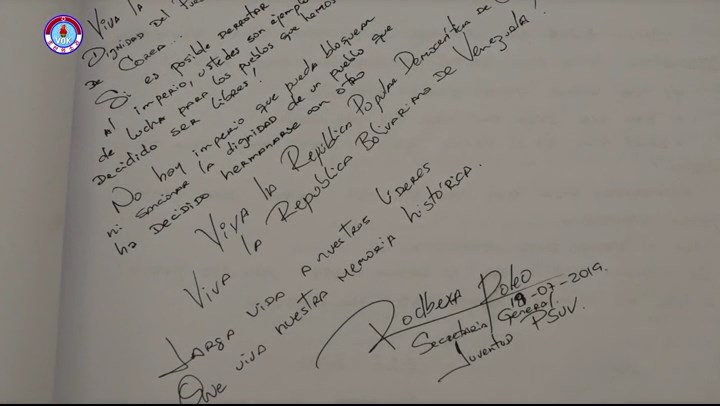 VOK
Viva la
Dignidad del
de Corea...
Si es posible derrotar
al imperio, ustedes son ejemplo
de lucha para los pueblos que hemos
Decidido ser libres!
No hay imperio que pueda bloquear
ni sancionar la dignidad de un pueblo que
ha Decidido hermanarse con otro
Viva la República Popular Democrática de
Viva la República Bolivariana de Venezuela!
Larga vida a nuestros líderes
Que viva nuestra memoria histórica.
Rodbexa Poleo
18-07-2019.
Secretaria General
Juventud PSUV.